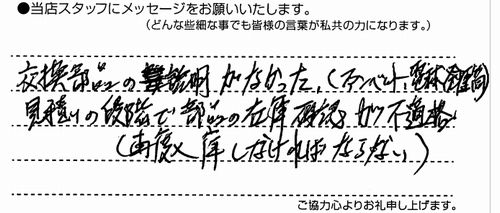 ●当店スタッフにメッセージをお願いいたします。
(どんな些細な事でも皆様の言葉が私共の力になります。)
交換部品の説明がなかった。(
見積りの段階で部品の在庫確認が不適格
(再度入庫しなければならない)
ご協力心よりお礼申し上げます。